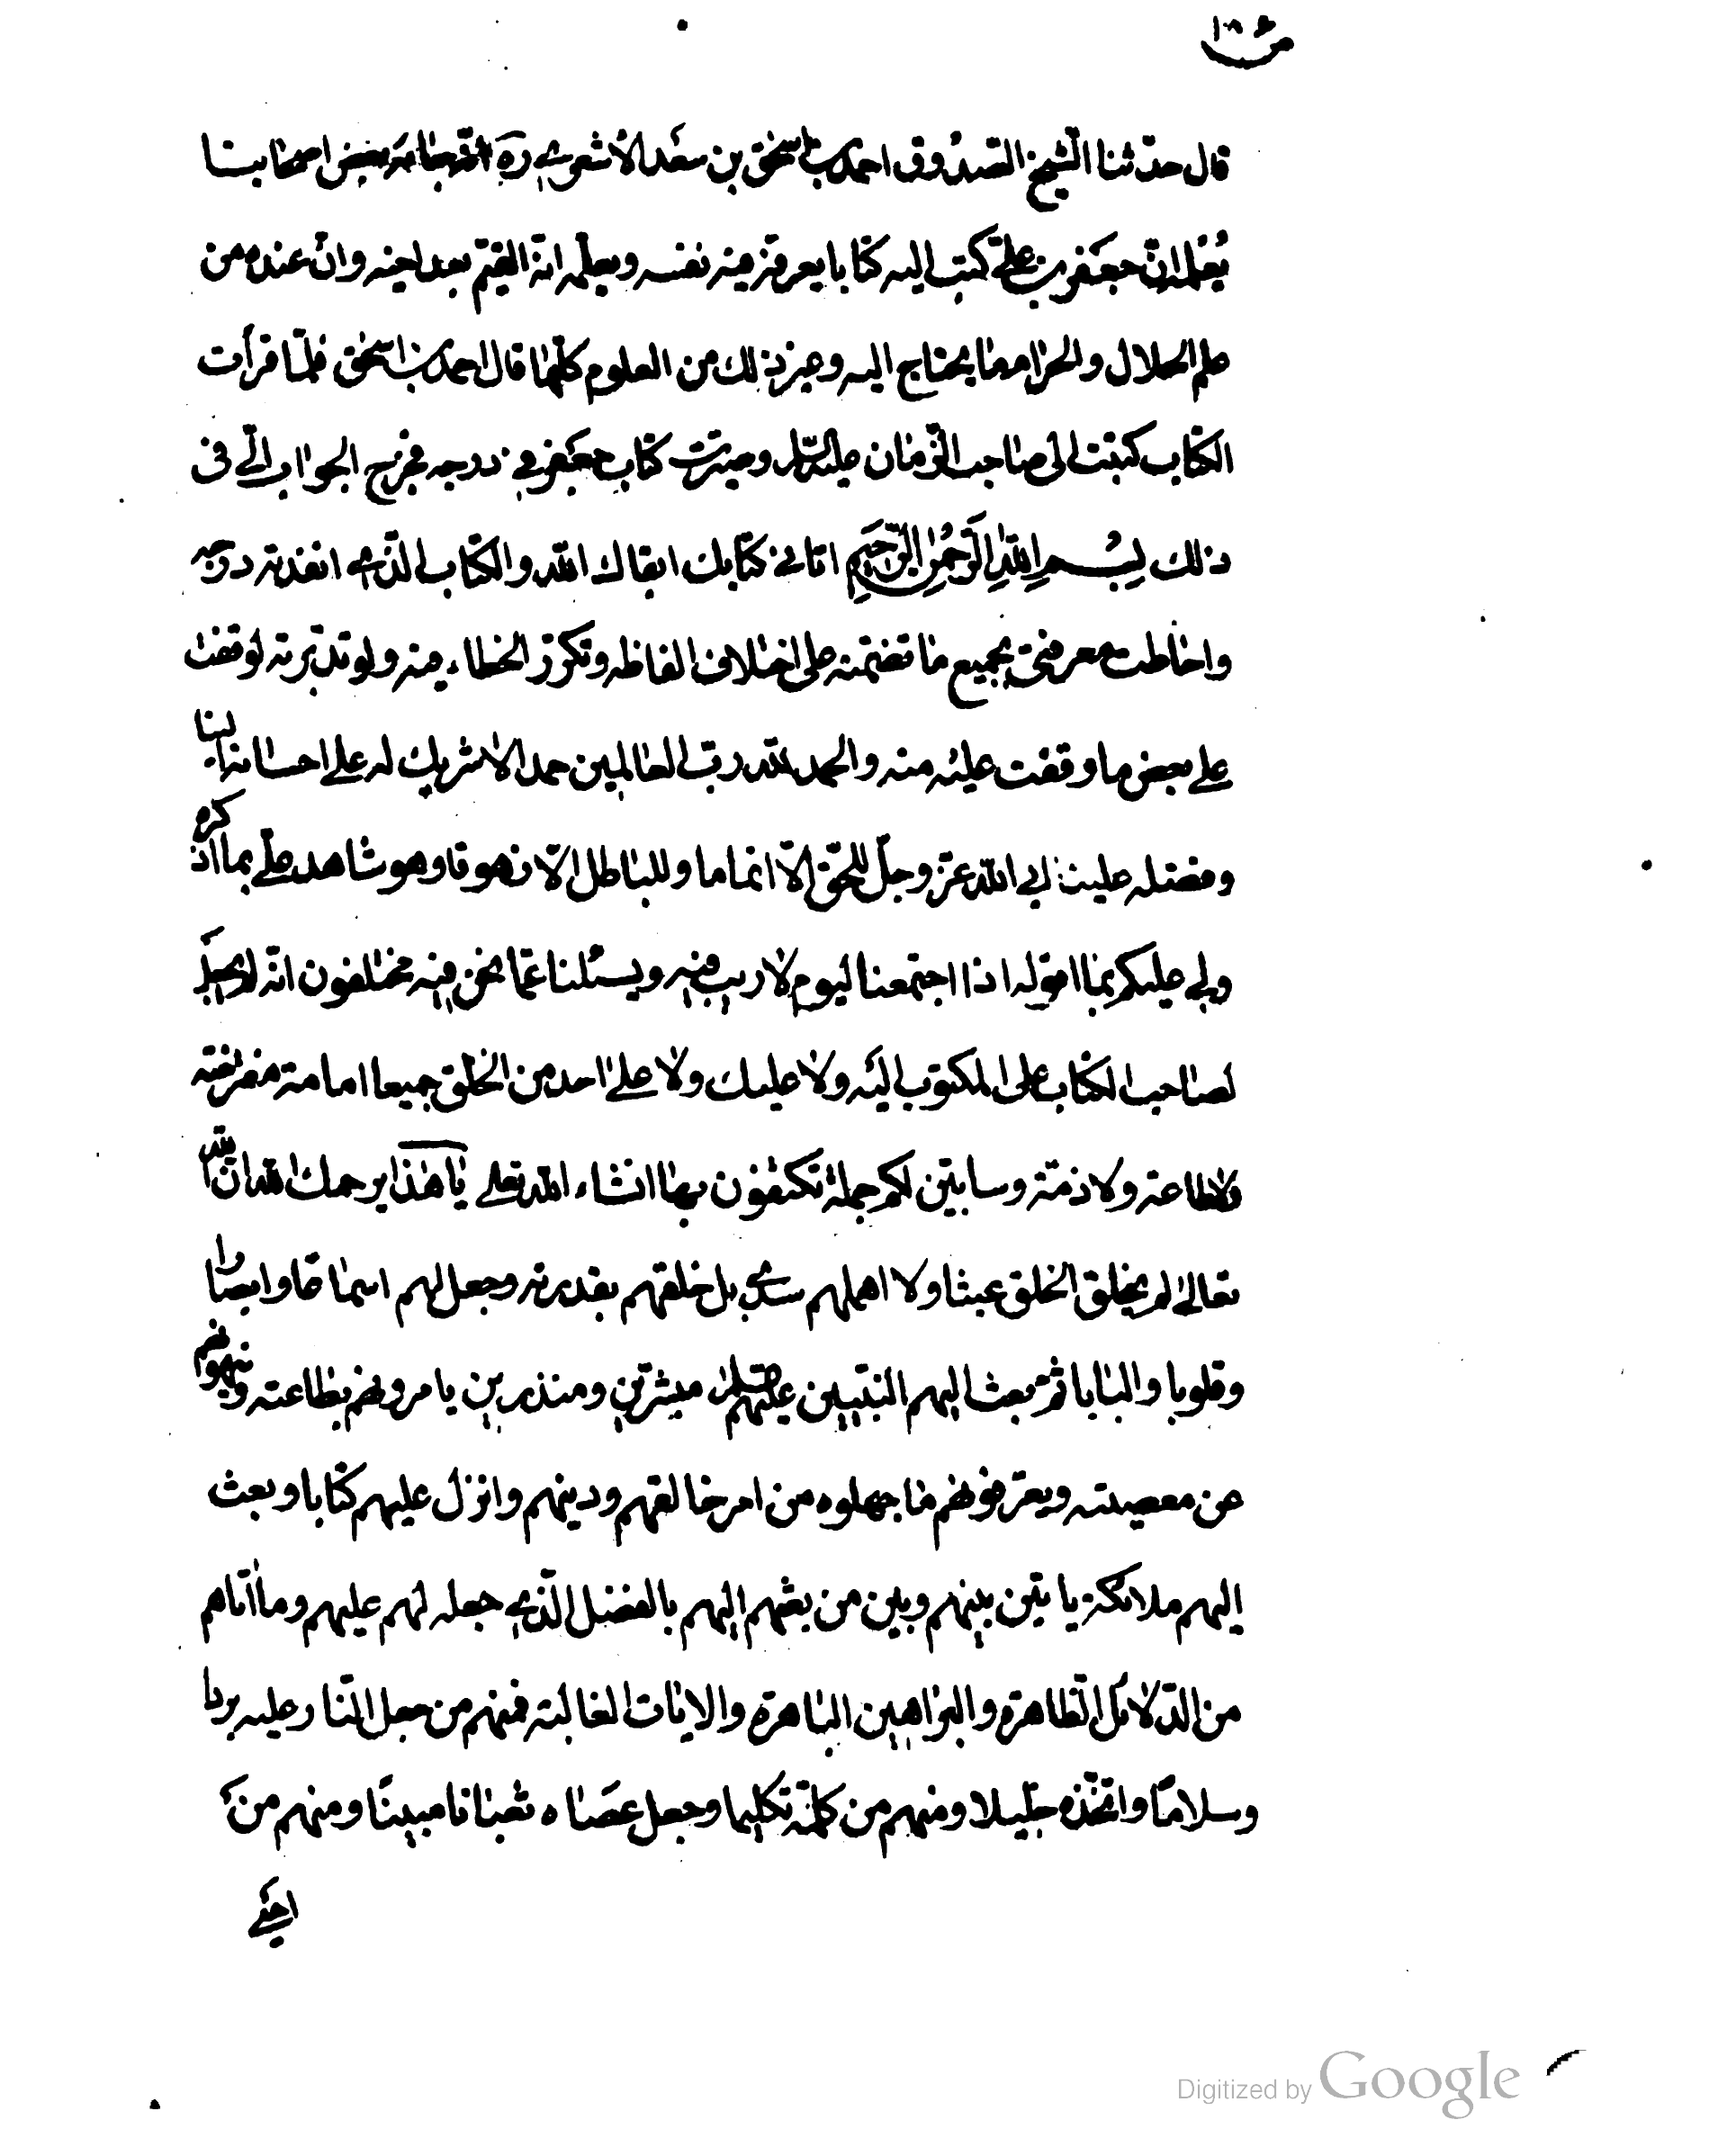 قال حدثنا الشيخ الصدوق احمد بن اسحق بن سعد الاشعري ره انه جائه بعض اصحابنا
يعلمه ان جعفر بن علي كتب اليه كتابا يعرفه فيه نفسه ويعلمه انه القيم بعد اخيه وان عنده من
علم الحلال والحرام ما يحتاج اليه وغير ذلك من العلوم كلها قال احمد بن اسحق فلما قرأت
الكتاب كتبت الى صاحب الزمان عليه السلام وصيرت كتاب جعفر في درجه فخرج الجواب الي في
ذلك بسم الله الرحمن الرحيم اتاني كتابك ابقاك الله والكتاب الذي انفذته درجه
واحاطت معرفتي بجميع ما تضمنه على اختلاف الفاظه وتكرر الخطاء فيه ولو تدبرته لوقفت
على بعض ما وقفت عليه منه والحمد لله رب العالمين حمدا لا شريك له على احسانه الينا
وفضله علينا ابى الله عز وجل للحق الا اتماما وللباطل الا زهوقا وهو شاهد علي بما اذكره
ولي عليكم بما اقوله اذا اجتمعنا ليوم لا ريب فيه ويسئلنا عما نحن فيه مختلفون انه لم يجعل
لصاحب الكتاب على المكتوب اليه ولا عليك ولا على احد من الخلق جميعا امامة مفترضة
ولا طاعة ولا ذمة وسابين لكم جملة تكتفون بها انشاء الله تعلى يا هذا يرحمك الله ان الله
تعالى لم يخلق الخلق عبثا ولا اهملهم سدى بل خلقهم بقدرته وجعل لهم اسماعا وابصارا
وقلوبا والبابا ثم بعث اليهم النبيين عليهم السلام مبشرين ومنذرين يامرونهم بطاعته وينهونهم
عن معصيته ويعرفونهم ما جهلوه من امر خالقهم ودينهم وانزل عليهم كتابا وبعث
اليهم ملائكة ياتين بينهم وبين من بعثهم اليهم بالفضل الذي جعله لهم عليهم وما اتاهم
من الدلائل الظاهرة والبراهين الباهرة والايات الغالبة فمنهم من جعل النار عليه بردا
وسلاما واتخذه خليلا ومنهم من كلمه تكليما وجعل عصاه ثعبانا مبينا ومنهم من
احيى
Digitized by Google